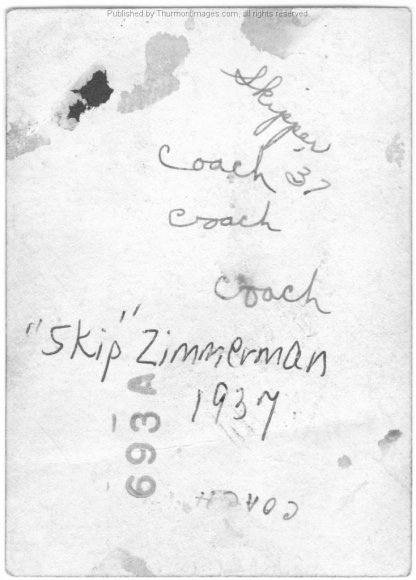 Published by Thurmonimages.com, all rights reserved.
Skipper
'37
Coach
coach
coach
"Skip" Zimmerman
1937
693 A
COACH